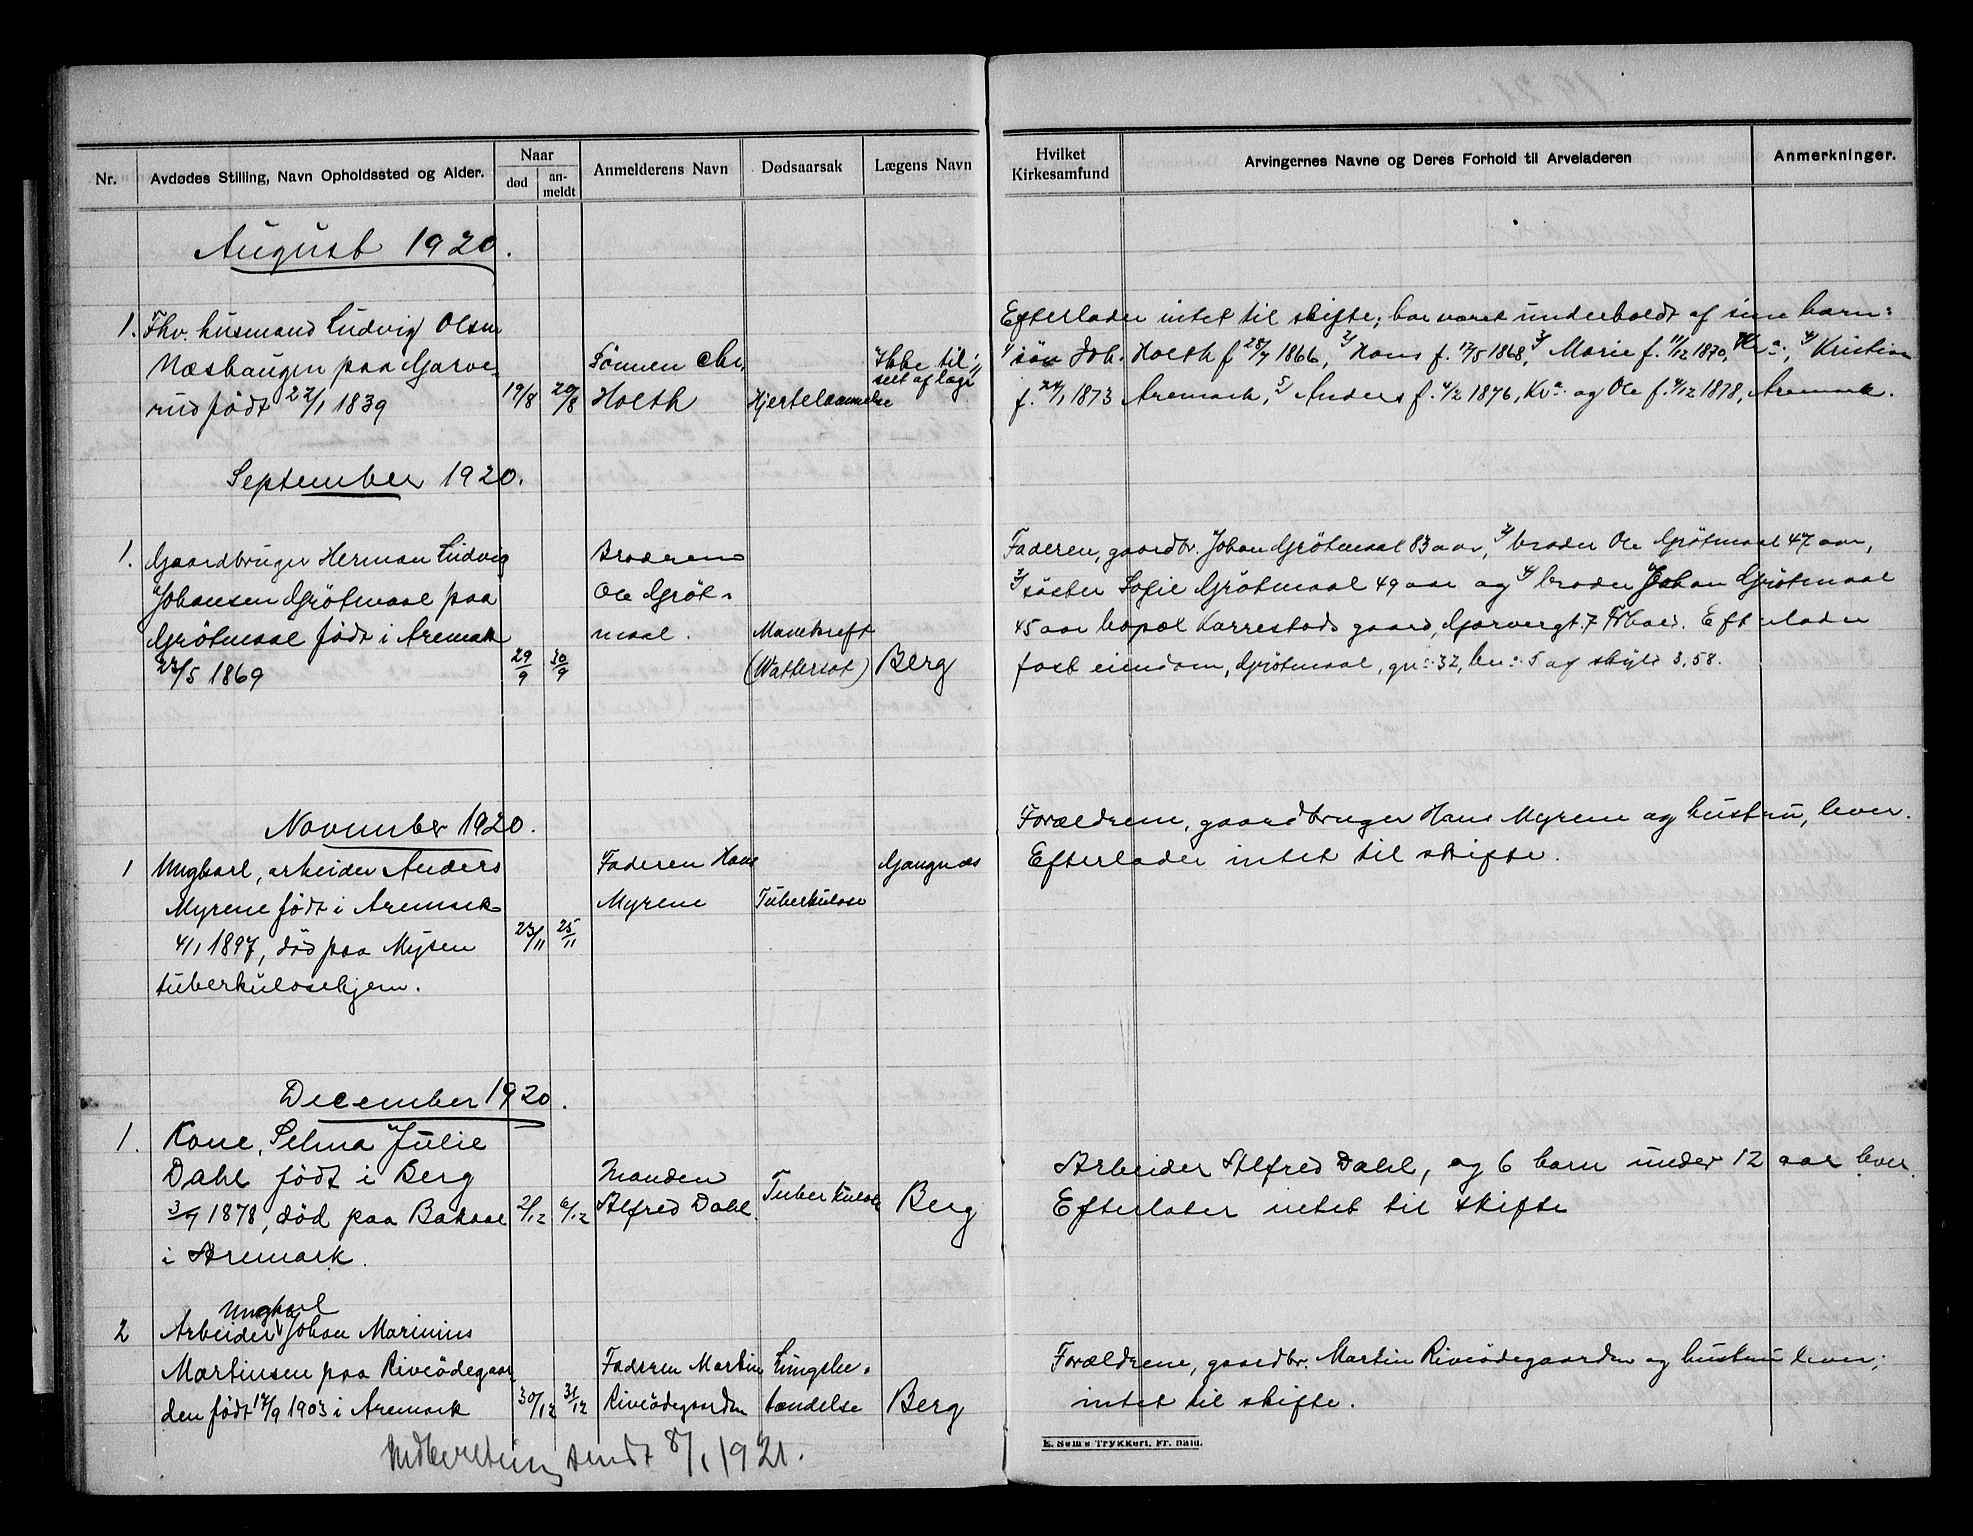 Nr.
Avdødes Stilling, Navn Opholdssted og Alder.
Naar
død
an-
meldt
Anmelderens Navn
Dødsaarsak
Lægens Navn
Hvilket
Kirkesamfund
Arvingernes Navne og Deres Forhold til Arveladeren
Anmerkninger.
August 1920.
1. Fhv. husmand Ludvig Olsen
Næshaugen paa Garve-
rud født 22/1 1839
19/8
20/8
Sønnen Chr.
Holth
Hjertelammelse
Ikke til-
seet af læge
Efterlader intet til skifte; har været underholdt af sine barn:
1/ søn Joh. Holth f. 28/7 1866, 2/ Hans f. 17/5 1868, 3/ Marie f. 11/12 1870, Kr.a., 4/ Kristian
f. 24/1 1873 Aremark, 5/ Anders f. 4/2 1876, Kr.a. og Ole f. 4/12 1878, Aremark.
September 1920.
1. Gaardbruger Herman Ludvig
Johansen Grötmaal paa
Grötmaal født i Aremark
22/5 1869
29/9
30/9
Broderen
Ole Gröt-
maal.
Mavekreft
(Wattersot)
Berg
Faderen, gaardbr. Johan Grötmaal 83 aar, 2/ broder Ole Grötmaal 47 aar,
3/ søster Sofie Grötmaal 49 aar og 4/ broder Johan Grötmaal
45 aar bopæl Karrestads gaard, Garvergt. 7 Frhald. Efterlader
fast eiendom, Grötmaal, gn: 32, bn: 5 af skyld 3,58.
November 1920.
1 Ungkarl, arbeider Anders
Myrene født i Aremark
4/1 1897, død paa Mysen
tuberkulosehjem.
23/11
25/11
Faderen Hans
Myrene
Tuberkulose
Gangnæs
Forældrene, gaardbruger Hans Myrene og hustru, lever.
Efterlader intet til skifte.
December 1920.
1. Kone, Selma Julie
Dahl født i Berg
3/9 1878, død paa Bakaae
i Aremark.
2/12
6/12
Manden
Alfred Dahl.
Tuberkulose
Berg
Arbeider Alfred Dahl, og 6 barn under 12 aar lever
Efterlater intet til skifte
Ungkarl
2 Arbeider Johan Marinius
Martinsen paa Riveødegaar
den født 17/9 1903 i Aremark
30/12
31/12
Faderen Martin
Riveødegaarden
Lungebe-
tændelse
Berg
Forældrene, gaardbr. Martin Riveødegaarden og hustru lever;
intet til skifte.
Indberetning sendt 8/1 1921.
E. Sem's Trykkeri, Fr. hald.